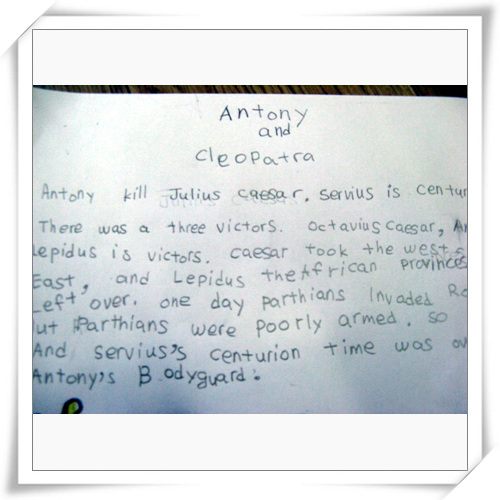 Antony
and
Cleopatra
Antony kill Julius caesar. servius is centur
There was a three victors. Octavius Caesar, An
Lepidus is victors. caesar took the west
East, and Lepidus the African provinces
Left over. one day parthians Invaded Ro
ut Parthians were poorly armed. so
And servius's centurion time was ov
Antony's Bodyguard.